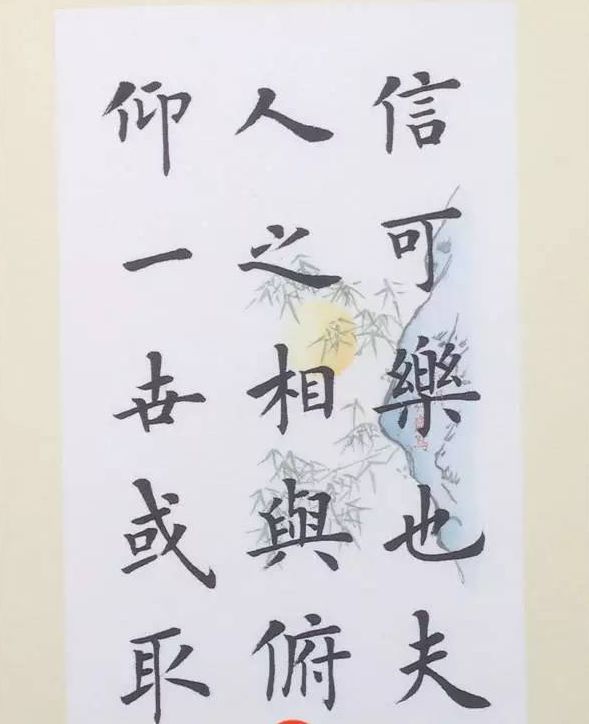 信可樂也夫
人之相與俯
仰一世或取